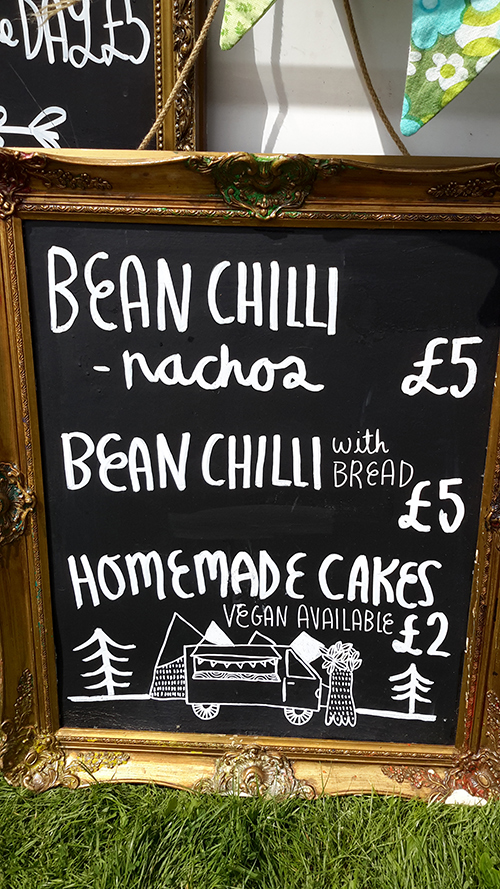 DAY £5
BEAN CHILLI
- nachos £5
BEAN CHILLI with BREAD £5
HOMEMADE CAKES
VEGAN AVAILABLE £2